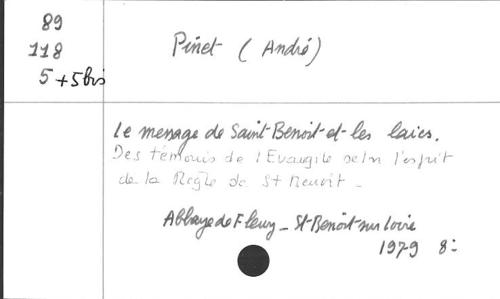 89
118
5 + 5 bis
Pinet (André)
Le message de Saint-Benoit et les laics.
Des témoins de l'Evangile selon l'esprit
de la Règle de St Benoit -
Abbaye de Fleury - St-Benoît sur Loire
1979 8: